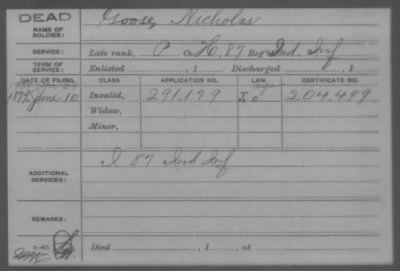 DEAD
NAME OF SOLDIER: Goose, Nicholas
SERVICE: Late rank, P Co. H, 87 Reg't Ind. Inf
TERM OF SERVICE: Enlisted , 1 Discharged , 1
DATE OF FILING. CLASS APPLICATION NO. LAW CERTIFICATE NO.
June 10 Invalid, 291,179 204,499
Widow,
Minor,
ADDITIONAL SERVICES: I 87 Ind Inf
REMARKS:
Died , 1 , at